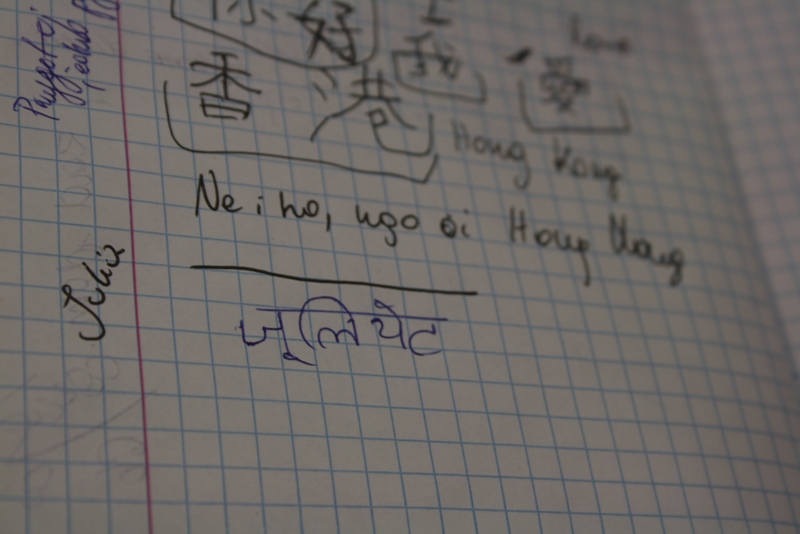 你好 I
我 Love
愛
香港 Hong Kong
Nei ho, ngo oi Hong Kong
Julia
जूलियेट